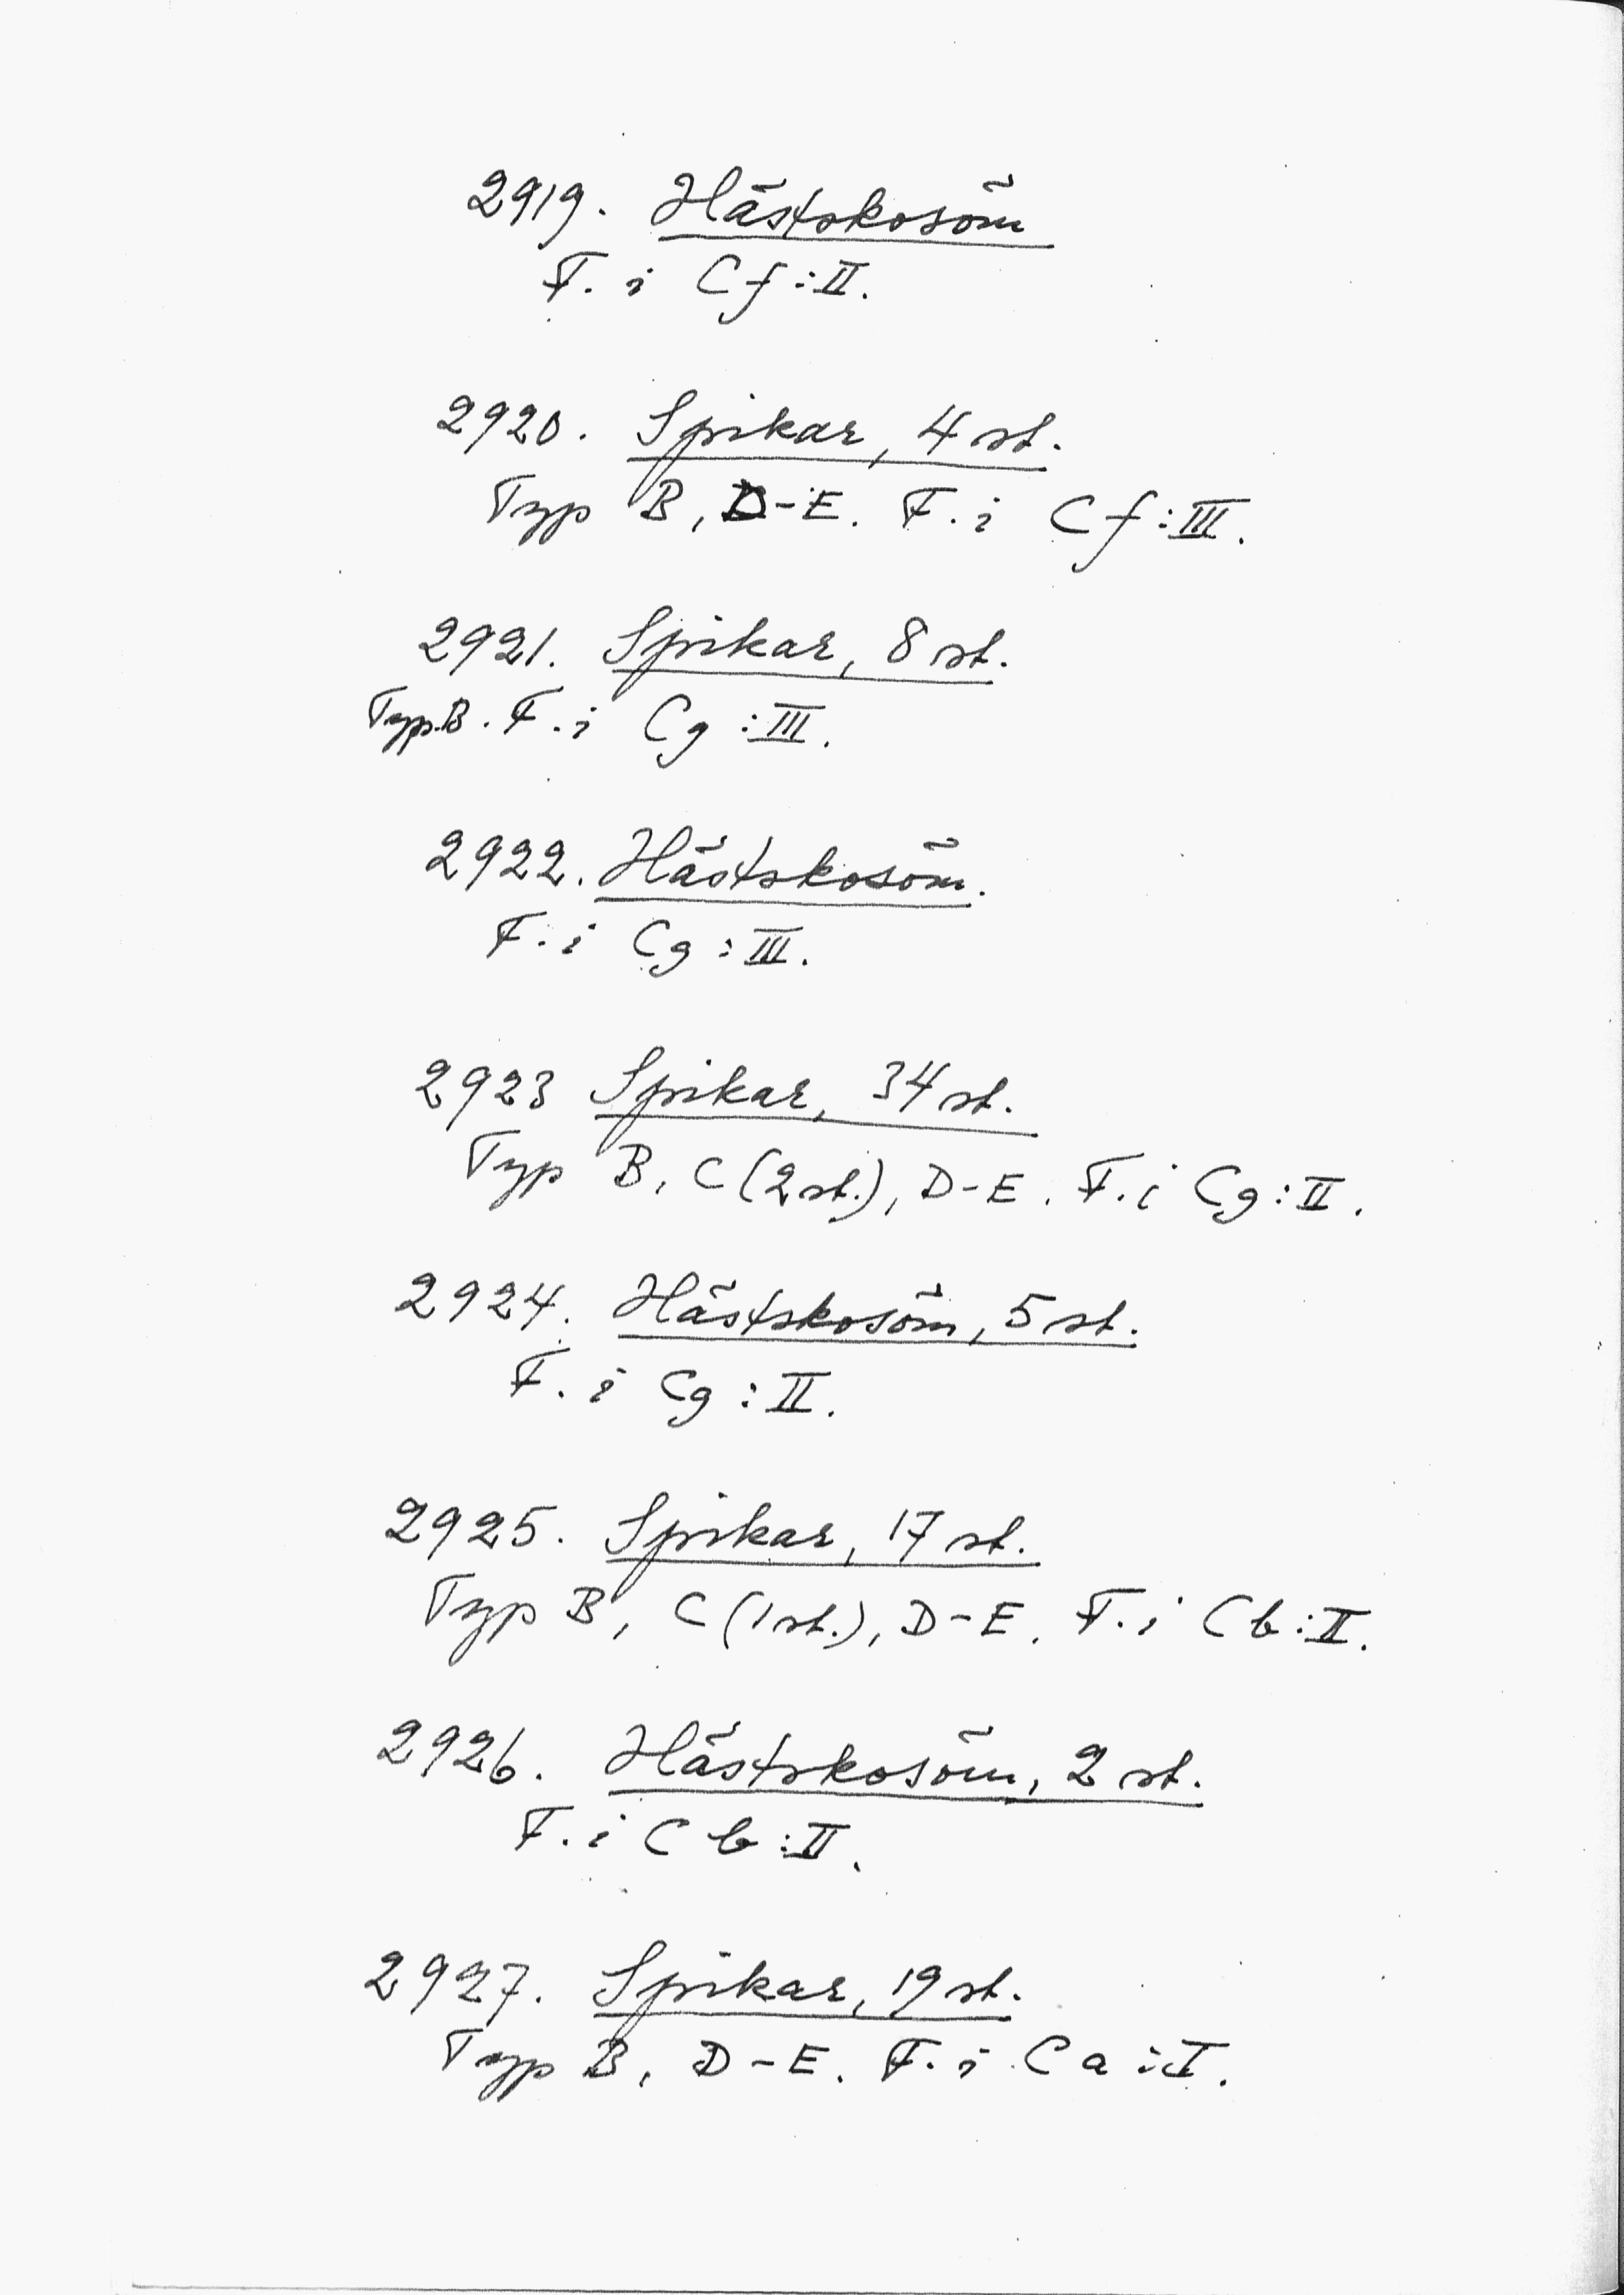 2919. Hästskosöm
F. i Cf:II.
2920. Spikar, 4 st.
Typ B, D-E. F. i Cf:III.
2921. Spikar, 8 st.
Typ B. F. i Cg:III.
2922. Hästskosöm.
F. i Cg:III.
2923 Spikar, 34 st.
Typ B, C (2 st.), D-E. F. i Cg:II.
2924. Hästskosöm, 5 st.
F. i Cg:II.
2925. Spikar, 17 st.
Typ B, C (1 st.), D-E. F. i Cb:II.
2926. Hästskosöm, 2 st.
F. i Cb:II.
2927. Spikar, 19 st.
Typ B, D-E. F. i Ca:I.